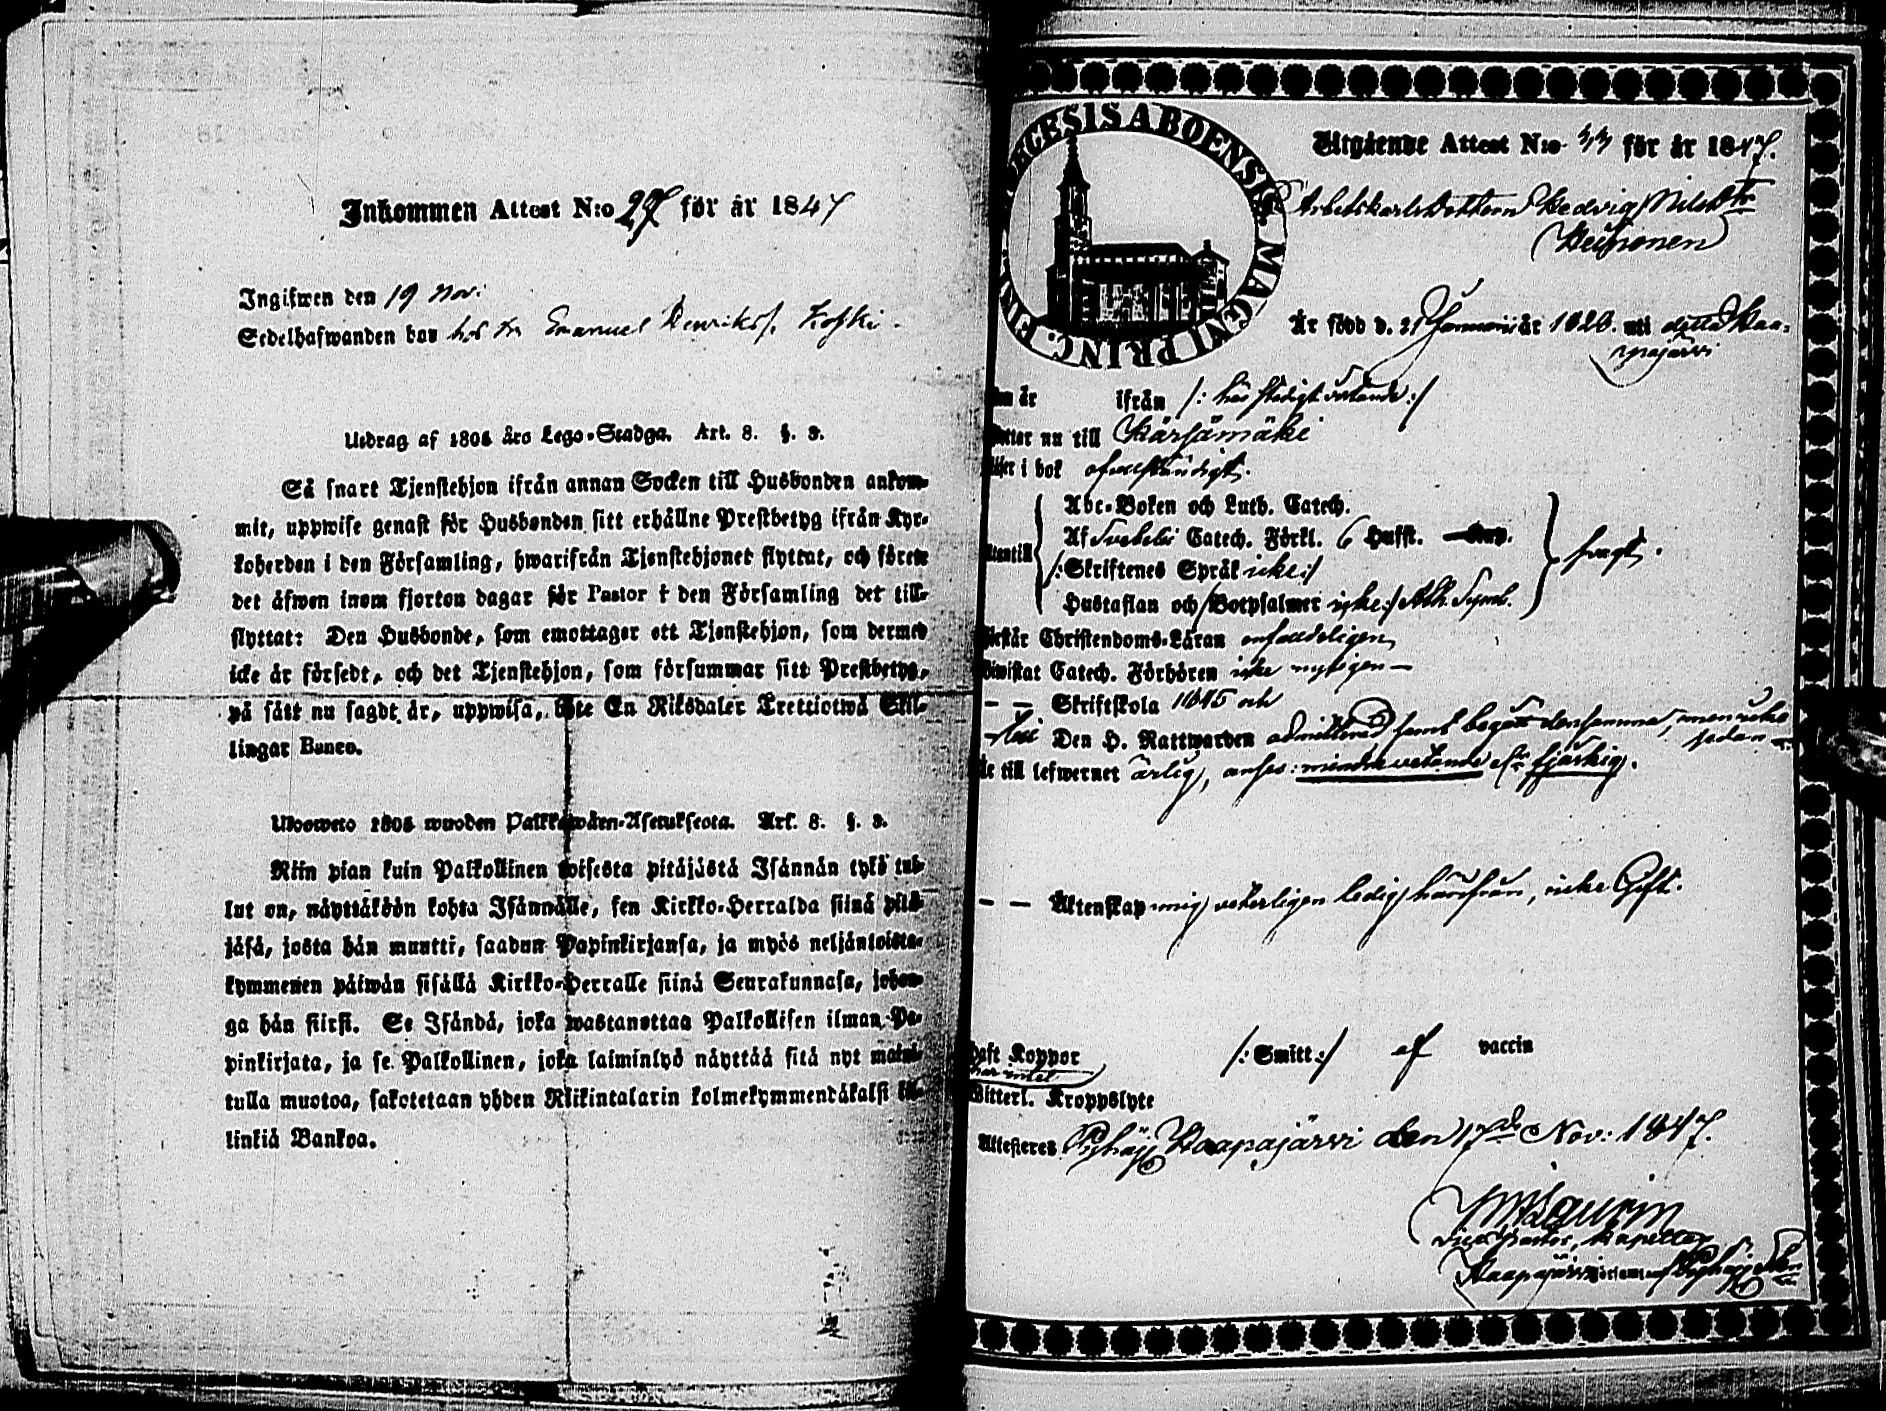 Inkommen Attest N:o 27 för år 1847
Ingifwen den 19 Nov:
Sedelhafwanden bor hos Emanuel Henrikss. Koski.
Utdrag af 1805 års Lego-Stadga. Art. 8. §. 3.
Så snart Tjenstehjon ifrån annan Socken till Husbonden ankom-
mit, uppwise genast för Husbonden sitt erhållne Prestbetyg ifrån Kyr-
koherden i den Församling, hwarifrån Tjenstehjonet flyttat, och förete
det äfwen inom fjorton dagar för Pastor i den Församling det till-
flyttat: Den Husbonde, som emottager ett Tjenstehjon, som dermed
icke är försedt, och det Tjenstehjon, som försummar sitt Prestbetyg,
på sätt nu sagdt är, uppwisa, böte En Riksdaler Trettiotwå Skil-
lingar Banco.
Ulosweto 1805 wuoden Palkkawäen-Asetuksesta. Art. 8. §. 3.
Niin pian kuin Palkollinen toisesta pitäjästä Isännän tykö tul-
lut on, näyttäköön kohta Isännälle, sen Kirkko-Herralda siinä pitä-
jäsä, josta hän muutti, saadun Papinkirjansa, ja myös neljäntoista-
kymmenen päiwän sisällä Kirkko-Herralle siinä Seurakunnasa, johon-
ga hän siirsi. Se Isändä, joka wastanottaa Palkollisen ilman Pa-
pinkirjata, ja se Palkollinen, joka laiminlyö näyttää sitä nyt mainit-
tulla muotoa, sakotetaan yhden Riikintalarin kolmekymmendäkaksi kil-
linkiä Bankoa.
DIOECESIS ABOENSIS MAGNI PRINC. FINL.
Utgående Attest N:o 33 för år 1847.
Arbetskarls Dottern Hedvig Nilsdtr
År född d. 21 Januarii år 1820. uti detta Haa-
pajärvi
ifrån /: här städigt vistande :/
nu till Kärsämäki
i bok ofullständigt.
Abc-Boken och Luth. Catech.
Af Svebelii Catech. Förkl. 6 Hufst.
/: Skriftenes Språk icke :/
Hustaflan och /Botpsalmer icke:/ Ath. Symb. svagt.
Christendoms-Läran enfaldeligen
Catech. Förhören icke nyligen —
— — Skriftskola 1845 och
Den H. Nattwarden admitterad samt begått densamma, men icke
sedan
till lefwernet ärlig, anses: mindre vetande och fjäskig.
— — Äktenskap mig veterligen ledig härifrån, icke Gift.
haft Koppor /: Smitt :/ af vaccin
har intet
Witterl. Kroppslyte
Attesteras Pyhäj. Haapajärvi den 17de Nov: 1847.
Vice Pastor, Kapellan